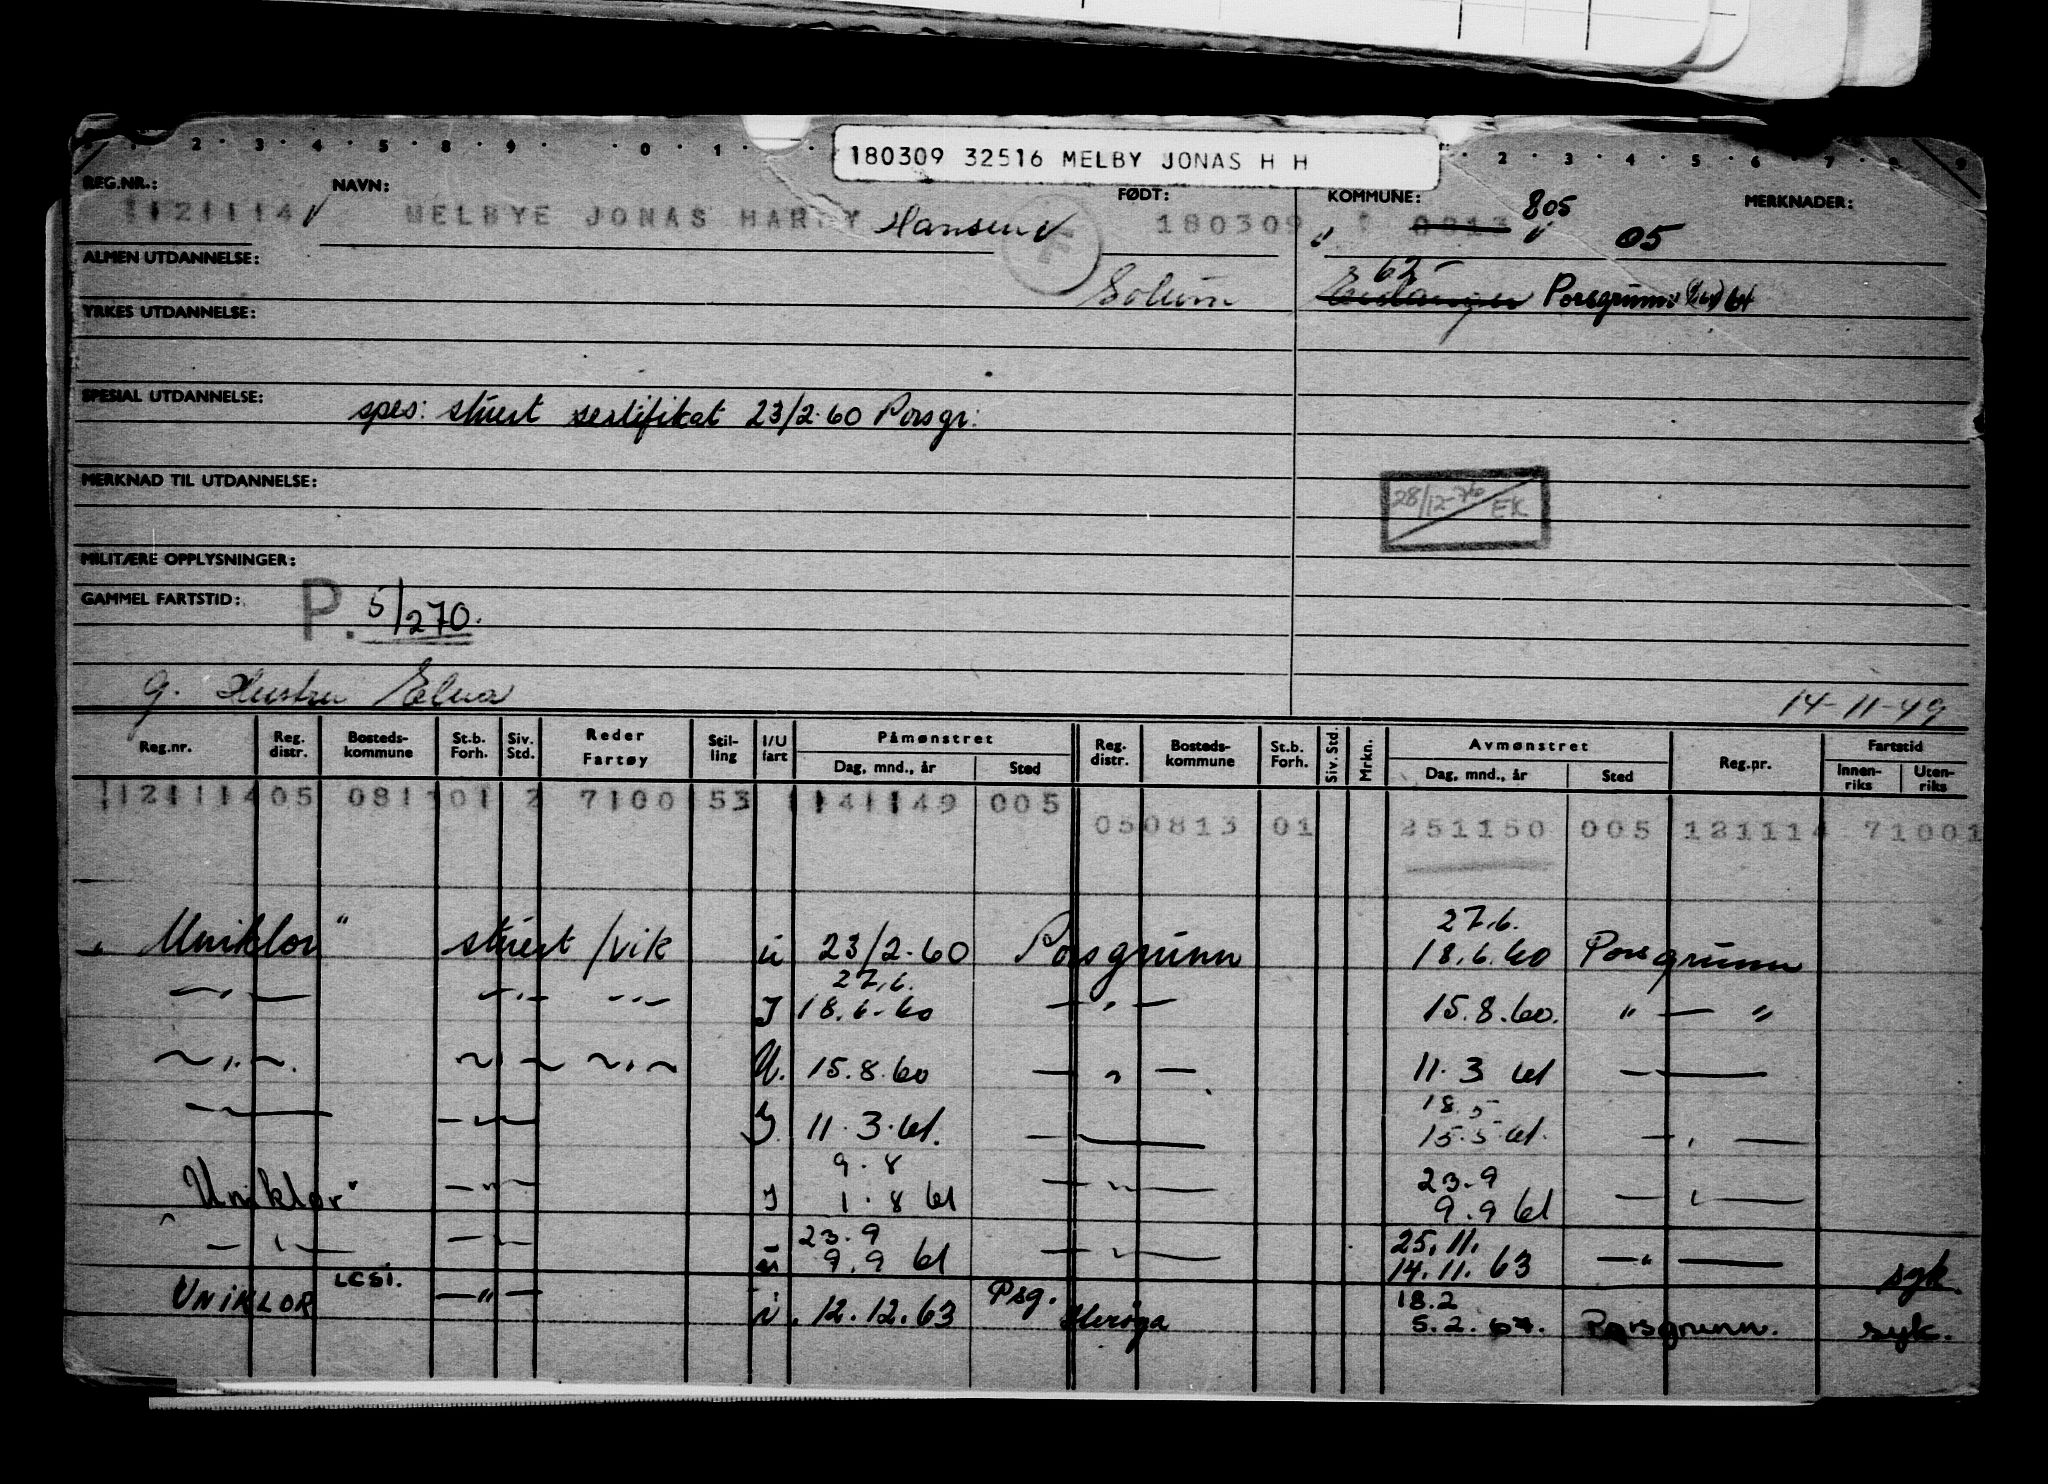 180309 32516 MELBY JONAS H H
REG.NR.: NAVN: FØDT: KOMMUNE: MERKNADER:
1121114 MELBYE JONAS HARRY Hansen 180309 0813 805 05
ALMEN UTDANNELSE:
Solum 62- Eidanger Porsgrunn
YRKES UTDANNELSE:
SPESIAL UTDANNELSE: spes: stuert sertifikat 23/2-60 Porsgr:
MERKNAD TIL UTDANNELSE:
28/12-76 EK
MILITÆRE OPPLYSNINGER:
GAMMEL FARTSTID: P. 5/270.
g. Hustru Elna 14-11-49
Reg.nr. Reg. distr. Bosteds-kommune St.b. Forh. Siv. Std. Reder Fartøy Stil-ling I/U fart Påmønstret Dag, mnd., år Sted Reg. distr. Bosteds-kommune St.b. Forh. Siv. Std. Mrkn. Avmønstret Dag, mnd., år Sted Reg.nr. Fartstid Innen-riks Uten-riks
1121114 05 0813 01 2 7100 53 141149 005
05 0813 01 251150 005 121114 71001
27.6.
"Uniklor" stuert /vik u 23/2-60 Porsgrunn 18.6.60 Porsgrunn
27.6.
—„— —„— —„— I 18.6-60 —„— 15.8.60. " — "
—„— —„— —„— U. 15.8.60 —„— 11.3 61 —
18.5
— —„— I. 11.3.61. — 15.5.61. —„—
9.8 23.9
"Uniklor" —„— I 1.8 61 —„— 9.9 61 —„—
23.9 25.11.
—„— —„— u 9.9 61 —„— 14.11.63 —„— syk
18.2
UNIKLOR LCSI. —"— u. 12.12.63 Psg. Herøya 5.2.64. Porsgrunn. syk.